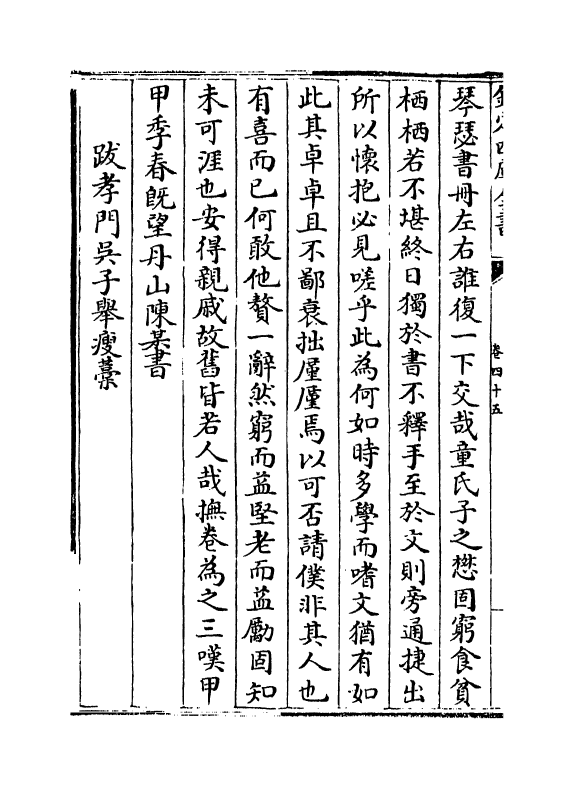 欽定四庫全書
卷四十五
琴瑟書冊左右誰復一下交哉童氏子之懋固窮食貧
栖栖若不堪終日獨於書不釋手至於文則旁通捷出
所以懷抱必見嗟乎此為何如時多學而嗜文猶有如
此其卓卓且不鄙衰拙屢屢焉以可否請僕非其人也
有喜而已何敢他贅一辭然窮而益堅老而益勵固知
未可涯也安得親戚故舊皆若人哉撫卷為之三嘆甲
甲季春旣望丹山陳某書
跋孝門吳子舉瘦藳